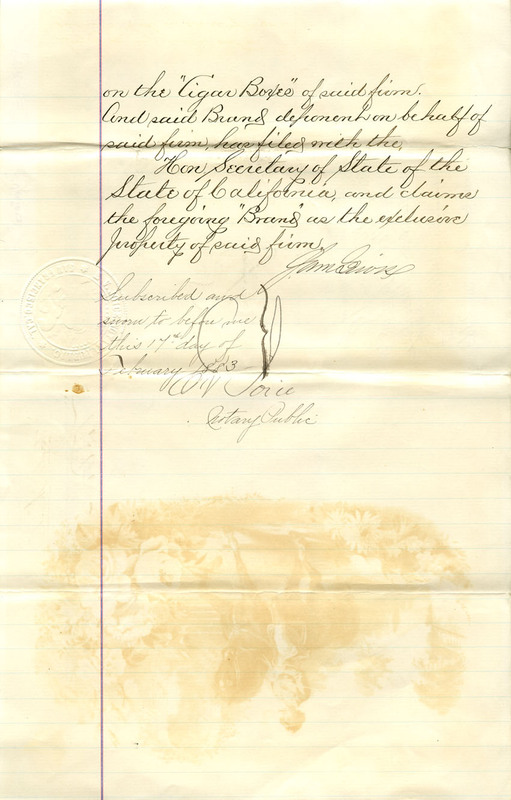 on the "Cigar Boxes" of said firm.
And said Brand deponent on behalf of
said firm, has filed with the
Hon Secretary of State of the
State of California, and claims
the foregoing "Brand" as the exclusive
property of said firm
Subscribed and
sworn to before me
this 17th day of
February 1883
Notary Public